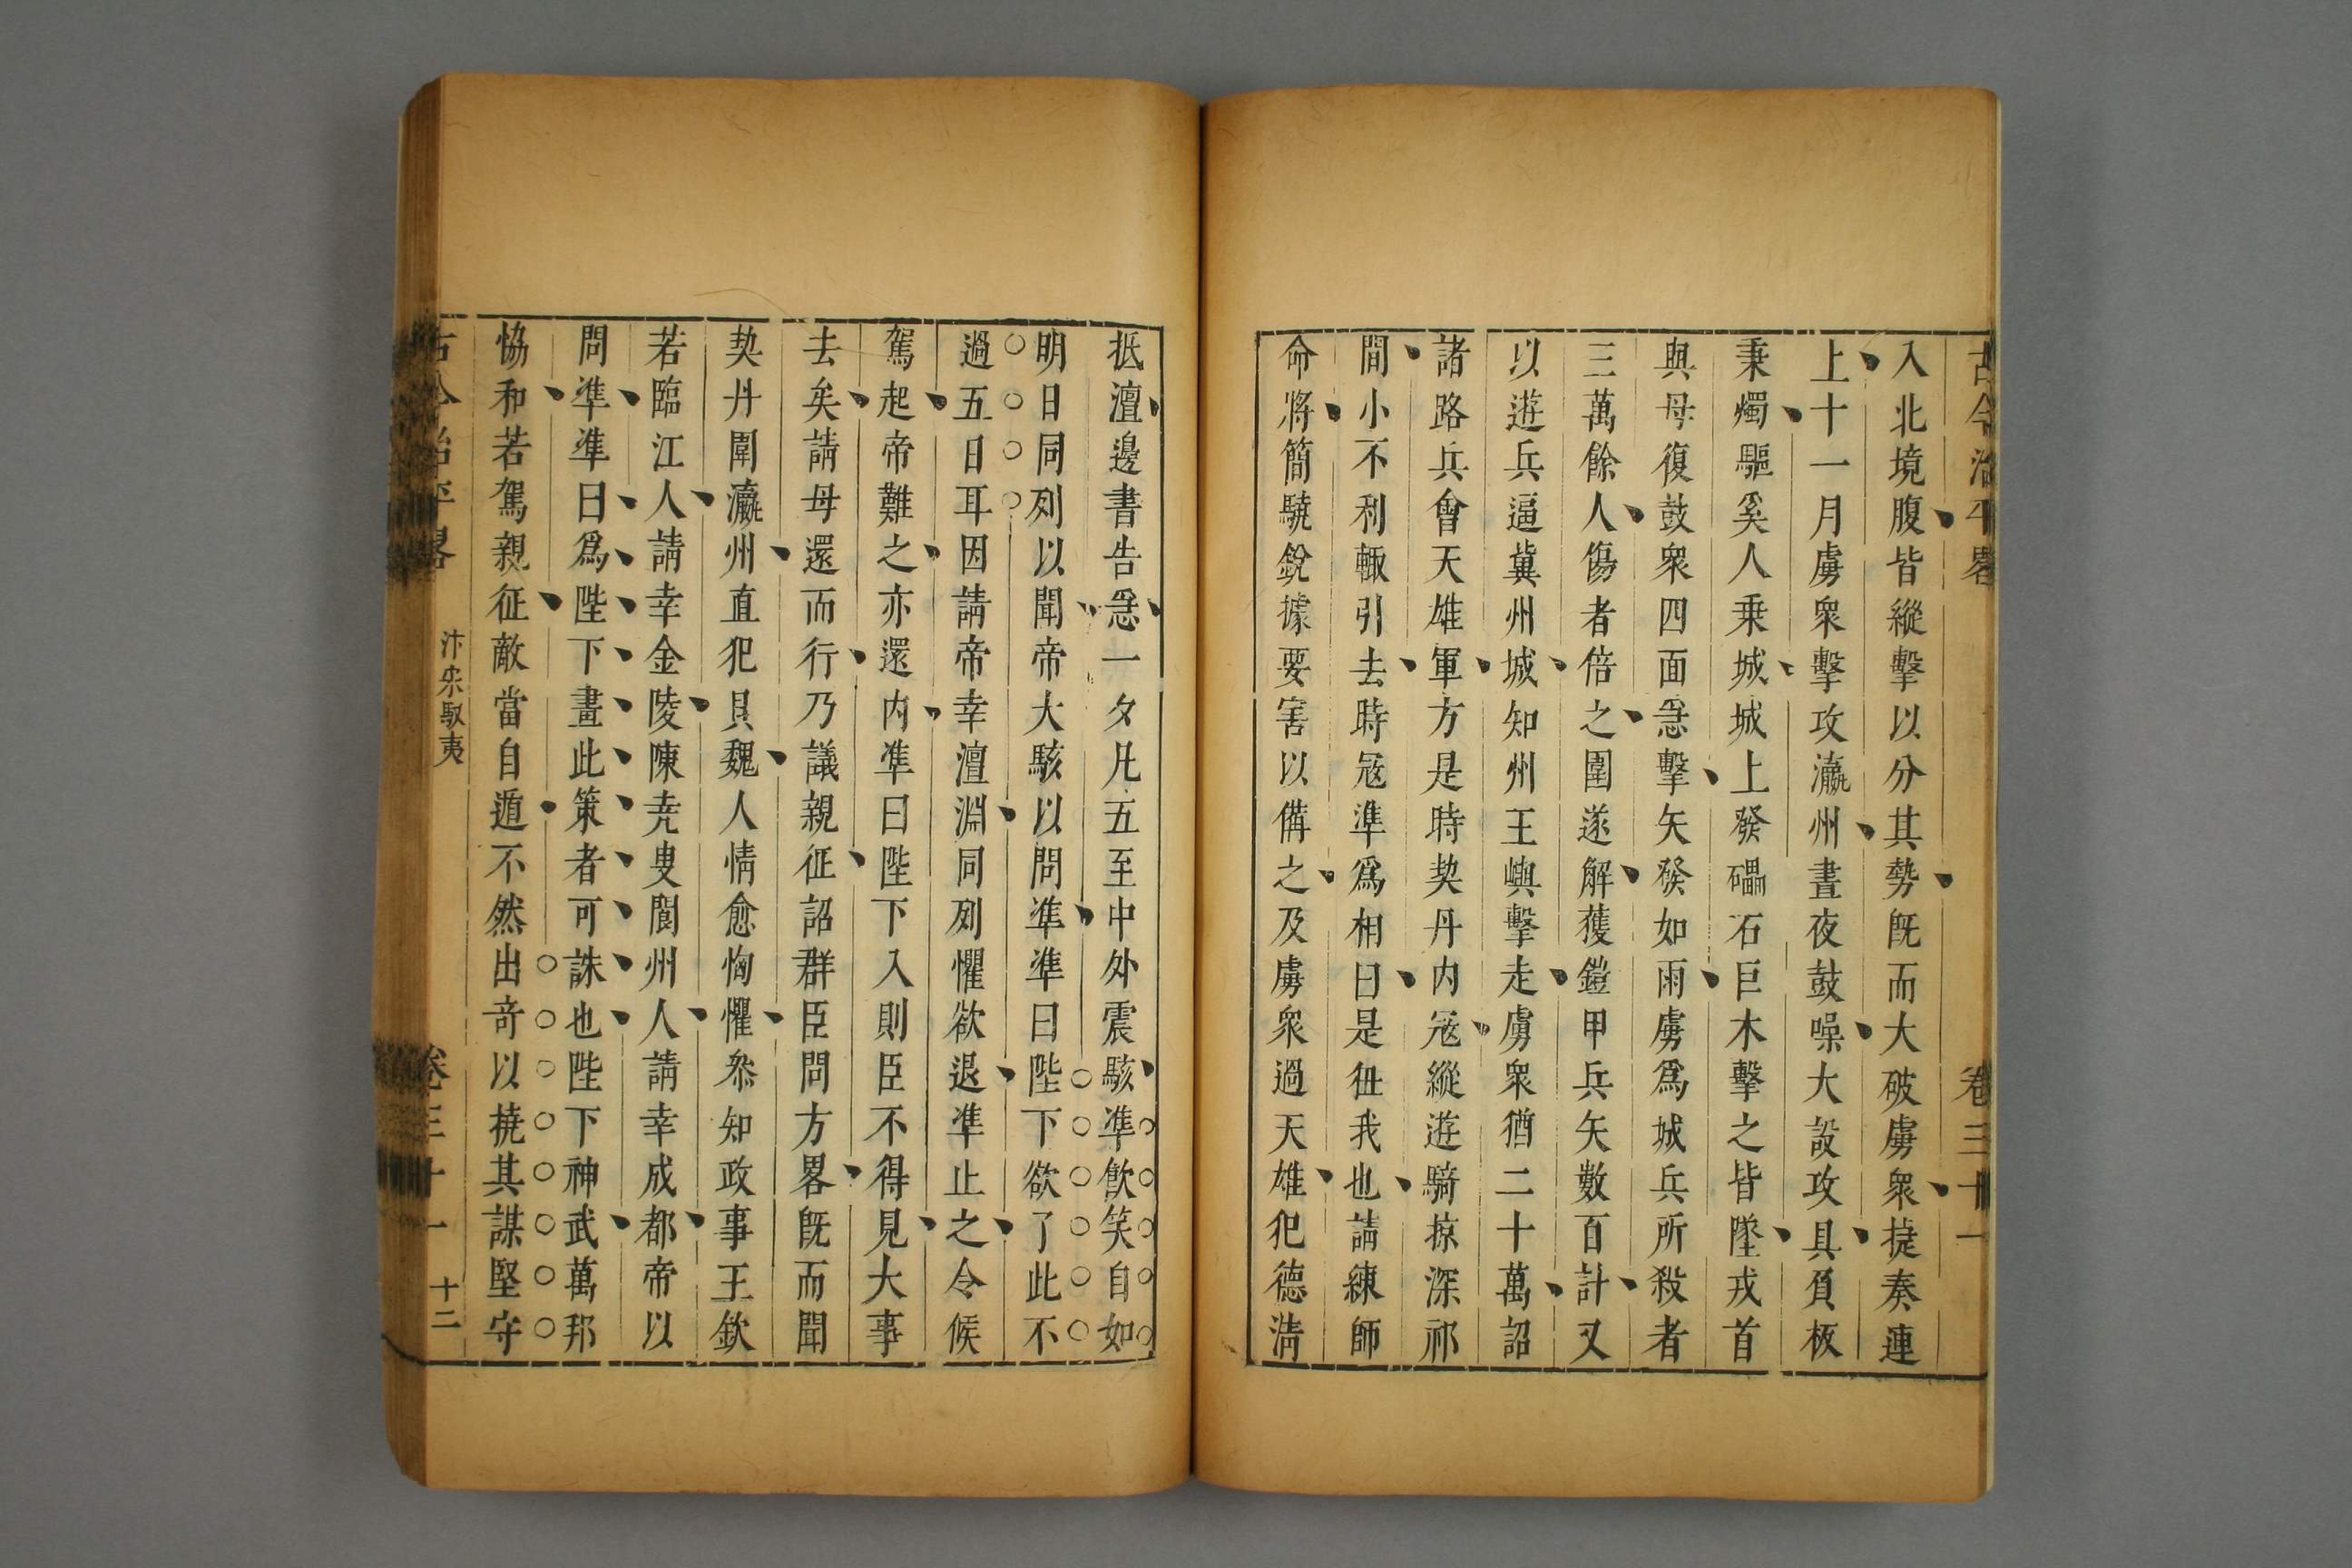 古今治平畧 卷三十一
入北境腹皆縱擊以分其勢旣而大破虜衆捷奏連
上十一月虜衆擊攻瀛州晝夜鼓噪大設攻具負板
秉燭驅奚人乗城城上發礧石巨木擊之皆墜戎首
與母復鼓衆四面急擊矢發如雨虜爲城兵所殺者
三萬餘人傷者倍之圍遂解獲鎧甲兵矢數百計又
以遊兵逼冀州城知州王嶼擊走虜衆猶二十萬詔
諸路兵會天雄軍方是時契丹内冦縱遊騎掠深祁
間小不利輙引去時冦準爲相曰是狃我也請練師
命將簡驍銳據要害以備之及虜衆過天雄犯德淸
抵澶邊書告急一夕凡五至中外震駭準飮笑自如
明日同列以聞帝大駭以問準準曰陛下欲了此不
過五日耳因請帝幸澶淵同列懼欲退準止之令候
駕起帝難之亦還内準曰陛下入則臣不得見大事
去矣請毋還而行乃議親征詔群臣問方畧旣而聞
契丹圍瀛州直犯貝魏人情愈恟懼叅知政事王欽
若臨江人請幸金陵陳尭叟閬州人請幸成都帝以
問準準曰爲陛下畫此策者可誅也陛下神武萬邦
恊和若駕親征敵當自遁不然出竒以撓其謀堅守
古今治平畧 汴宋馭夷 卷三十一 十二